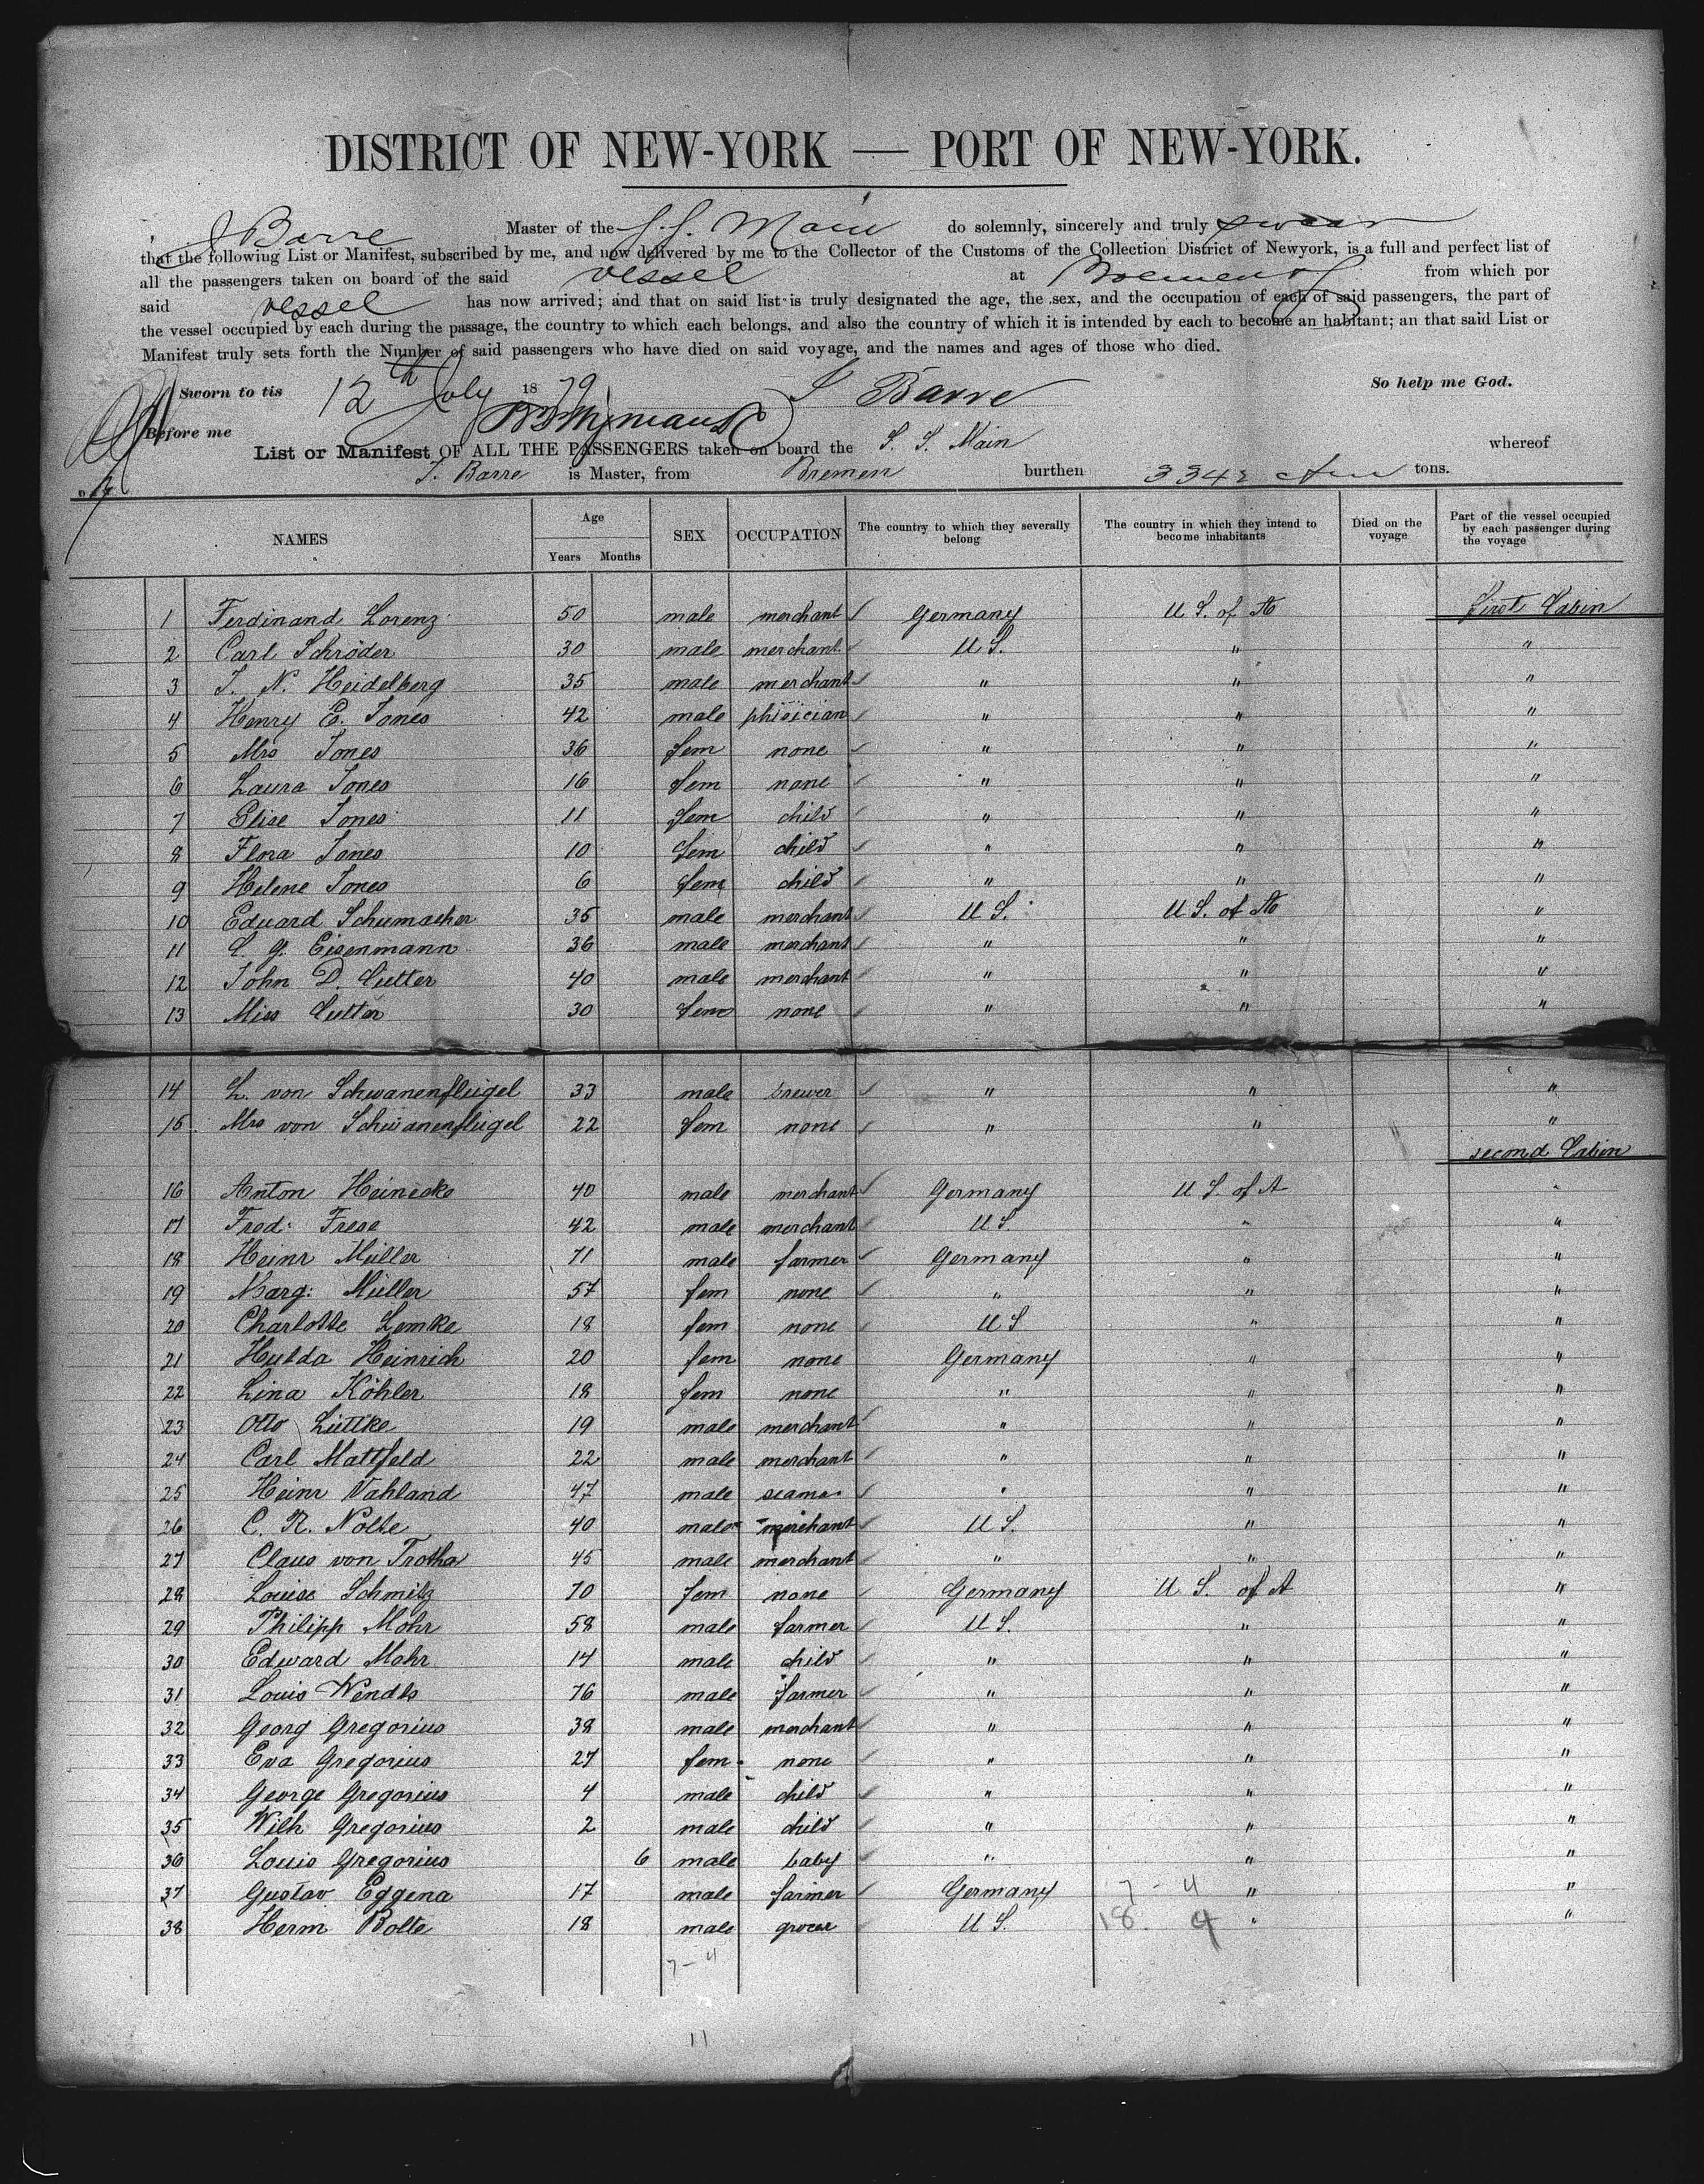 DISTRICT OF NEW-YORK — PORT OF NEW-YORK.
J Barre Master of the S.S. Main do solemnly, sincerely and truly swear
that the following List or Manifest, subscribed by me, and now delivered by me to the Collector of the Customs of the Collection District of Newyork, is a full and perfect list of
all the passengers taken on board of the said vessel at Bremen from which por
said vessel has now arrived; and that on said list is truly designated the age, the sex, and the occupation of each of said passengers, the part of
the vessel occupied by each during the passage, the country to which each belongs, and also the country of which it is intended by each to become an habitant; an that said List or
Manifest truly sets forth the Number of said passengers who have died on said voyage, and the names and ages of those who died.
Sworn to tis 12th July 1879 J Barre So help me God.
Before me
List or Manifest OF ALL THE PASSENGERS taken on board the S. S. Main whereof
J. Barre is Master, from Bremen burthen 3342 tons.
NAMES Age Years Months SEX OCCUPATION The country to which they severally belong The country in which they intend to become inhabitants Died on the voyage Part of the vessel occupied by each passenger during the voyage
1 Ferdinand Lorenz 50 male merchant Germany U S. of A First Cabin
2 Carl Schröder 30 male merchant U S. " "
3 J. N. Heidelberg 35 male merchant " " "
4 Henry E. Jones 42 male phisician " " "
5 Mrs Jones 36 fem none " " "
6 Laura Jones 16 fem none " " "
7 Elise Jones 11 fem child " " "
8 Flora Jones 10 fem child " " "
9 Helene Jones 6 fem child " " "
10 Eduard Schumacher 35 male merchant U S. U S. of A "
11 L. G. Eisenmann 36 male merchant " " "
12 John D. Cutter 40 male merchant " " "
13 Miss Cutter 30 fem none " " "
14 L. von Schwanenflügel 33 male brewer " " "
15 Mrs von Schwanenflügel 22 fem none " " "
second Cabin
16 Anton Heinecke 40 male merchant Germany U S. of A "
17 Fred: Frese 42 male merchant U S " "
18 Heinr Müller 71 male farmer Germany " "
19 Marg: Müller 57 fem none " " "
20 Charlotte Lemke 18 fem none U S " "
21 Hulda Heinrich 20 fem none Germany " "
22 Lina Köhler 18 fem none " " "
23 Otto Lüttke 19 male merchant " " "
24 Carl Mattfeld 22 male merchant " " "
25 Heinr Vahland 47 male seaman " " "
26 C. R. Nolte 40 male merchant U S. " "
27 Claus von Trotha 45 male merchant " " "
28 Louise Schmitz 70 fem none Germany U S. of A "
29 Philipp Mohr 58 male farmer U S. " "
30 Edward Mohr 14 male child " " "
31 Louis Wendls 76 male farmer " " "
32 Georg Gregorius 38 male merchant " " "
33 Eva Gregorius 27 fem none " " "
34 George Gregorius 4 male child " " "
35 Wilh Gregorius 2 male child " " "
36 Louis Gregorius 6 male baby " " "
37 Gustav Eggena 17 male farmer Germany 7 - 4 " "
38 Herm Bolte 18 male grocer U S. 18 4 " "
7 - 4
11